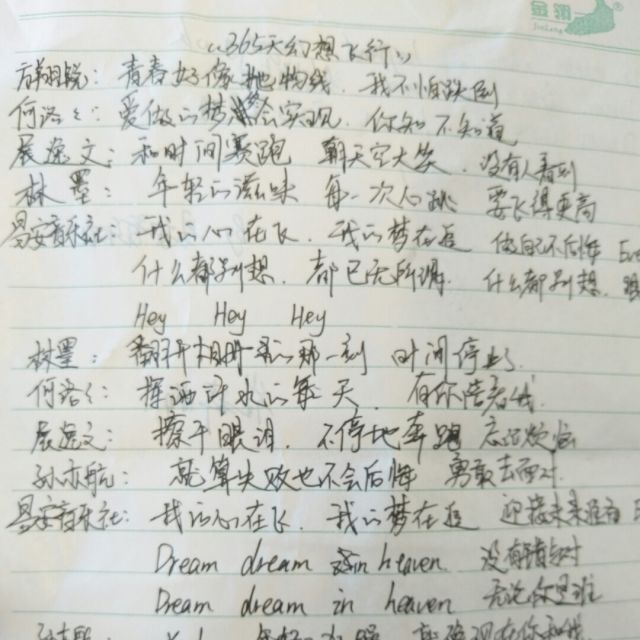 金翔
《365天幻想飞行》
方翔锐: 青春好像抛物线, 我不怕跌倒
何洛洛: 爱做的梦怎么实现, 你知不知道
展逸文: 和时间赛跑 朝天空大笑, 没有人看到
林墨: 年轻的滋味 每一次心跳 要飞得更高
易安音乐社: 我的心在飞, 我的梦在追 做自己不后悔
什么都别想, 都已无所谓, 什么都别想,
Hey Hey Hey
林墨: 翻开相册的那一刻 时间停止
何洛洛: 挥洒汗水的每一天, 有你陪着我
展逸文: 擦干眼泪, 不停地奔跑
孙亦航: 就算失败也不会后悔 勇敢去面对
易安音乐社: 我的心在飞, 我的梦在追 迎接未来
Dream dream in heaven 没有
Dream dream in heaven 无论你是谁